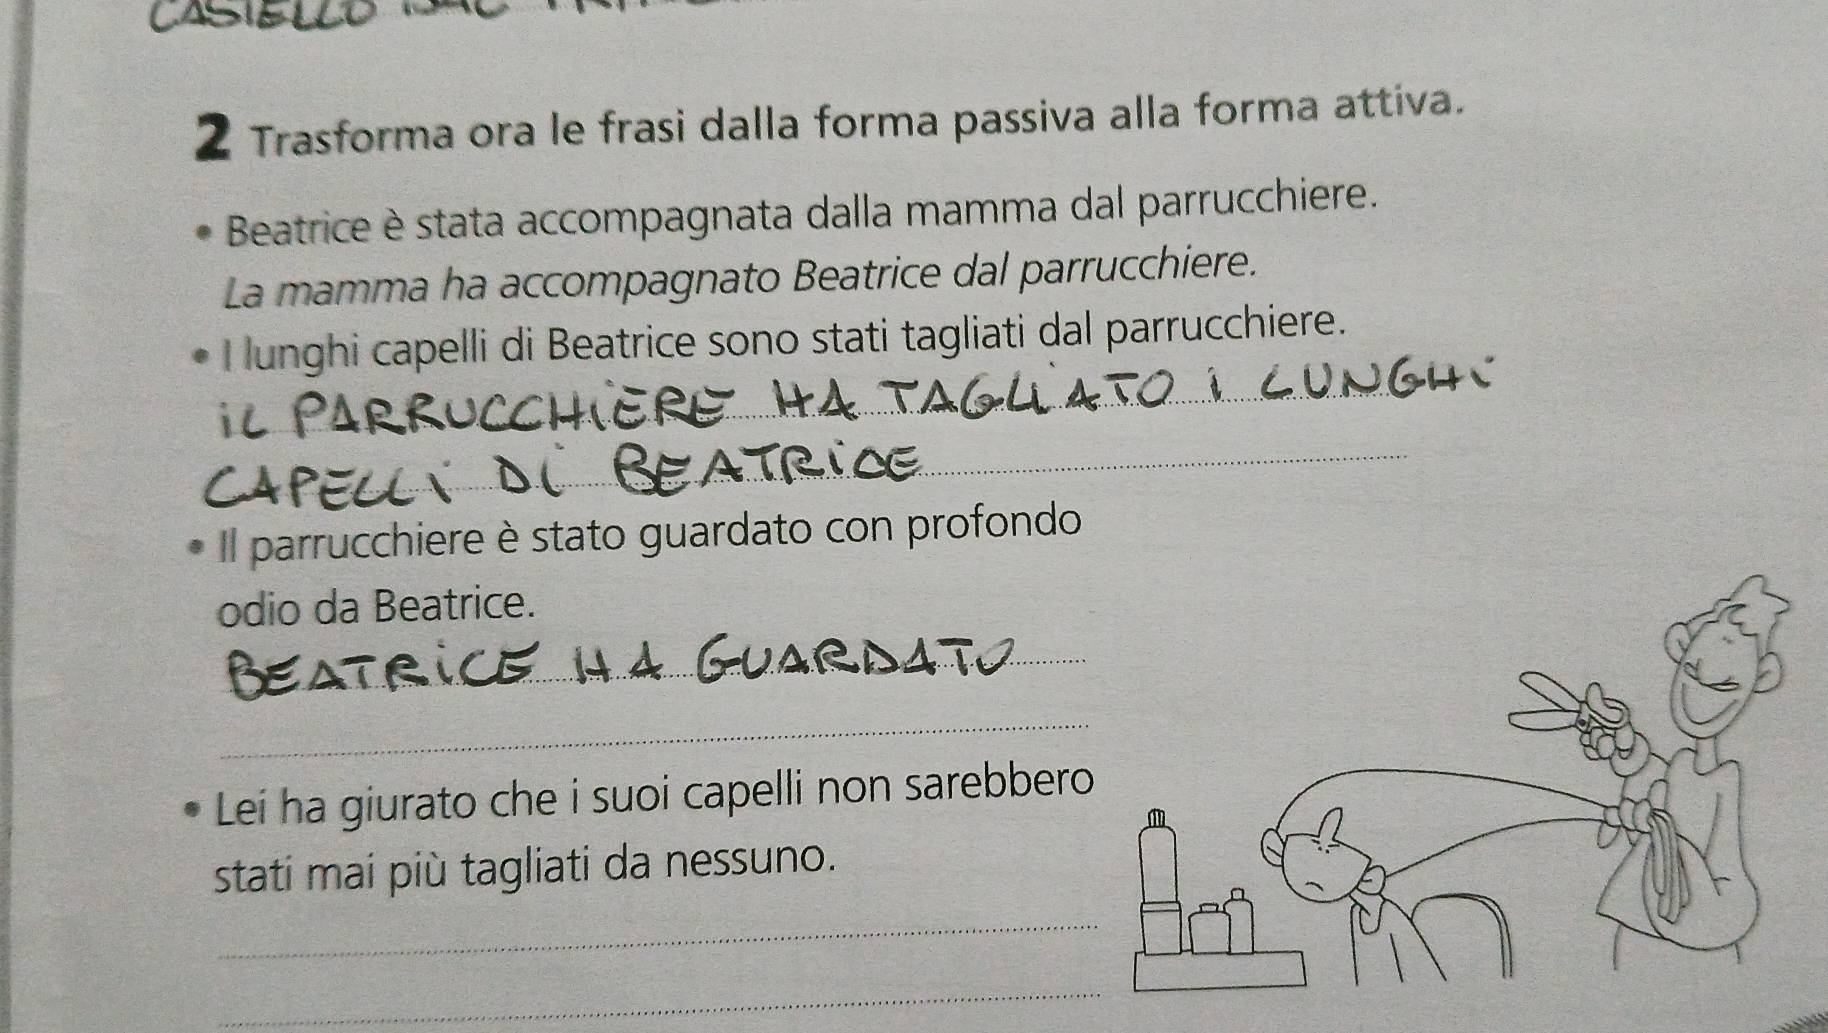 CASTELLO
2 Trasforma ora le frasi dalla forma passiva alla forma attiva.
• Beatrice è stata accompagnata dalla mamma dal parrucchiere.
La mamma ha accompagnato Beatrice dal parrucchiere.
• I lunghi capelli di Beatrice sono stati tagliati dal parrucchiere.
iL PARRUCCHiERE HA TAGLiATO i LUNGHi
CAPELLi Di BEATRiCE
• Il parrucchiere è stato guardato con profondo
odio da Beatrice.
BEATRiCE HA GUARDATO
• Lei ha giurato che i suoi capelli non sarebbero
stati mai più tagliati da nessuno.